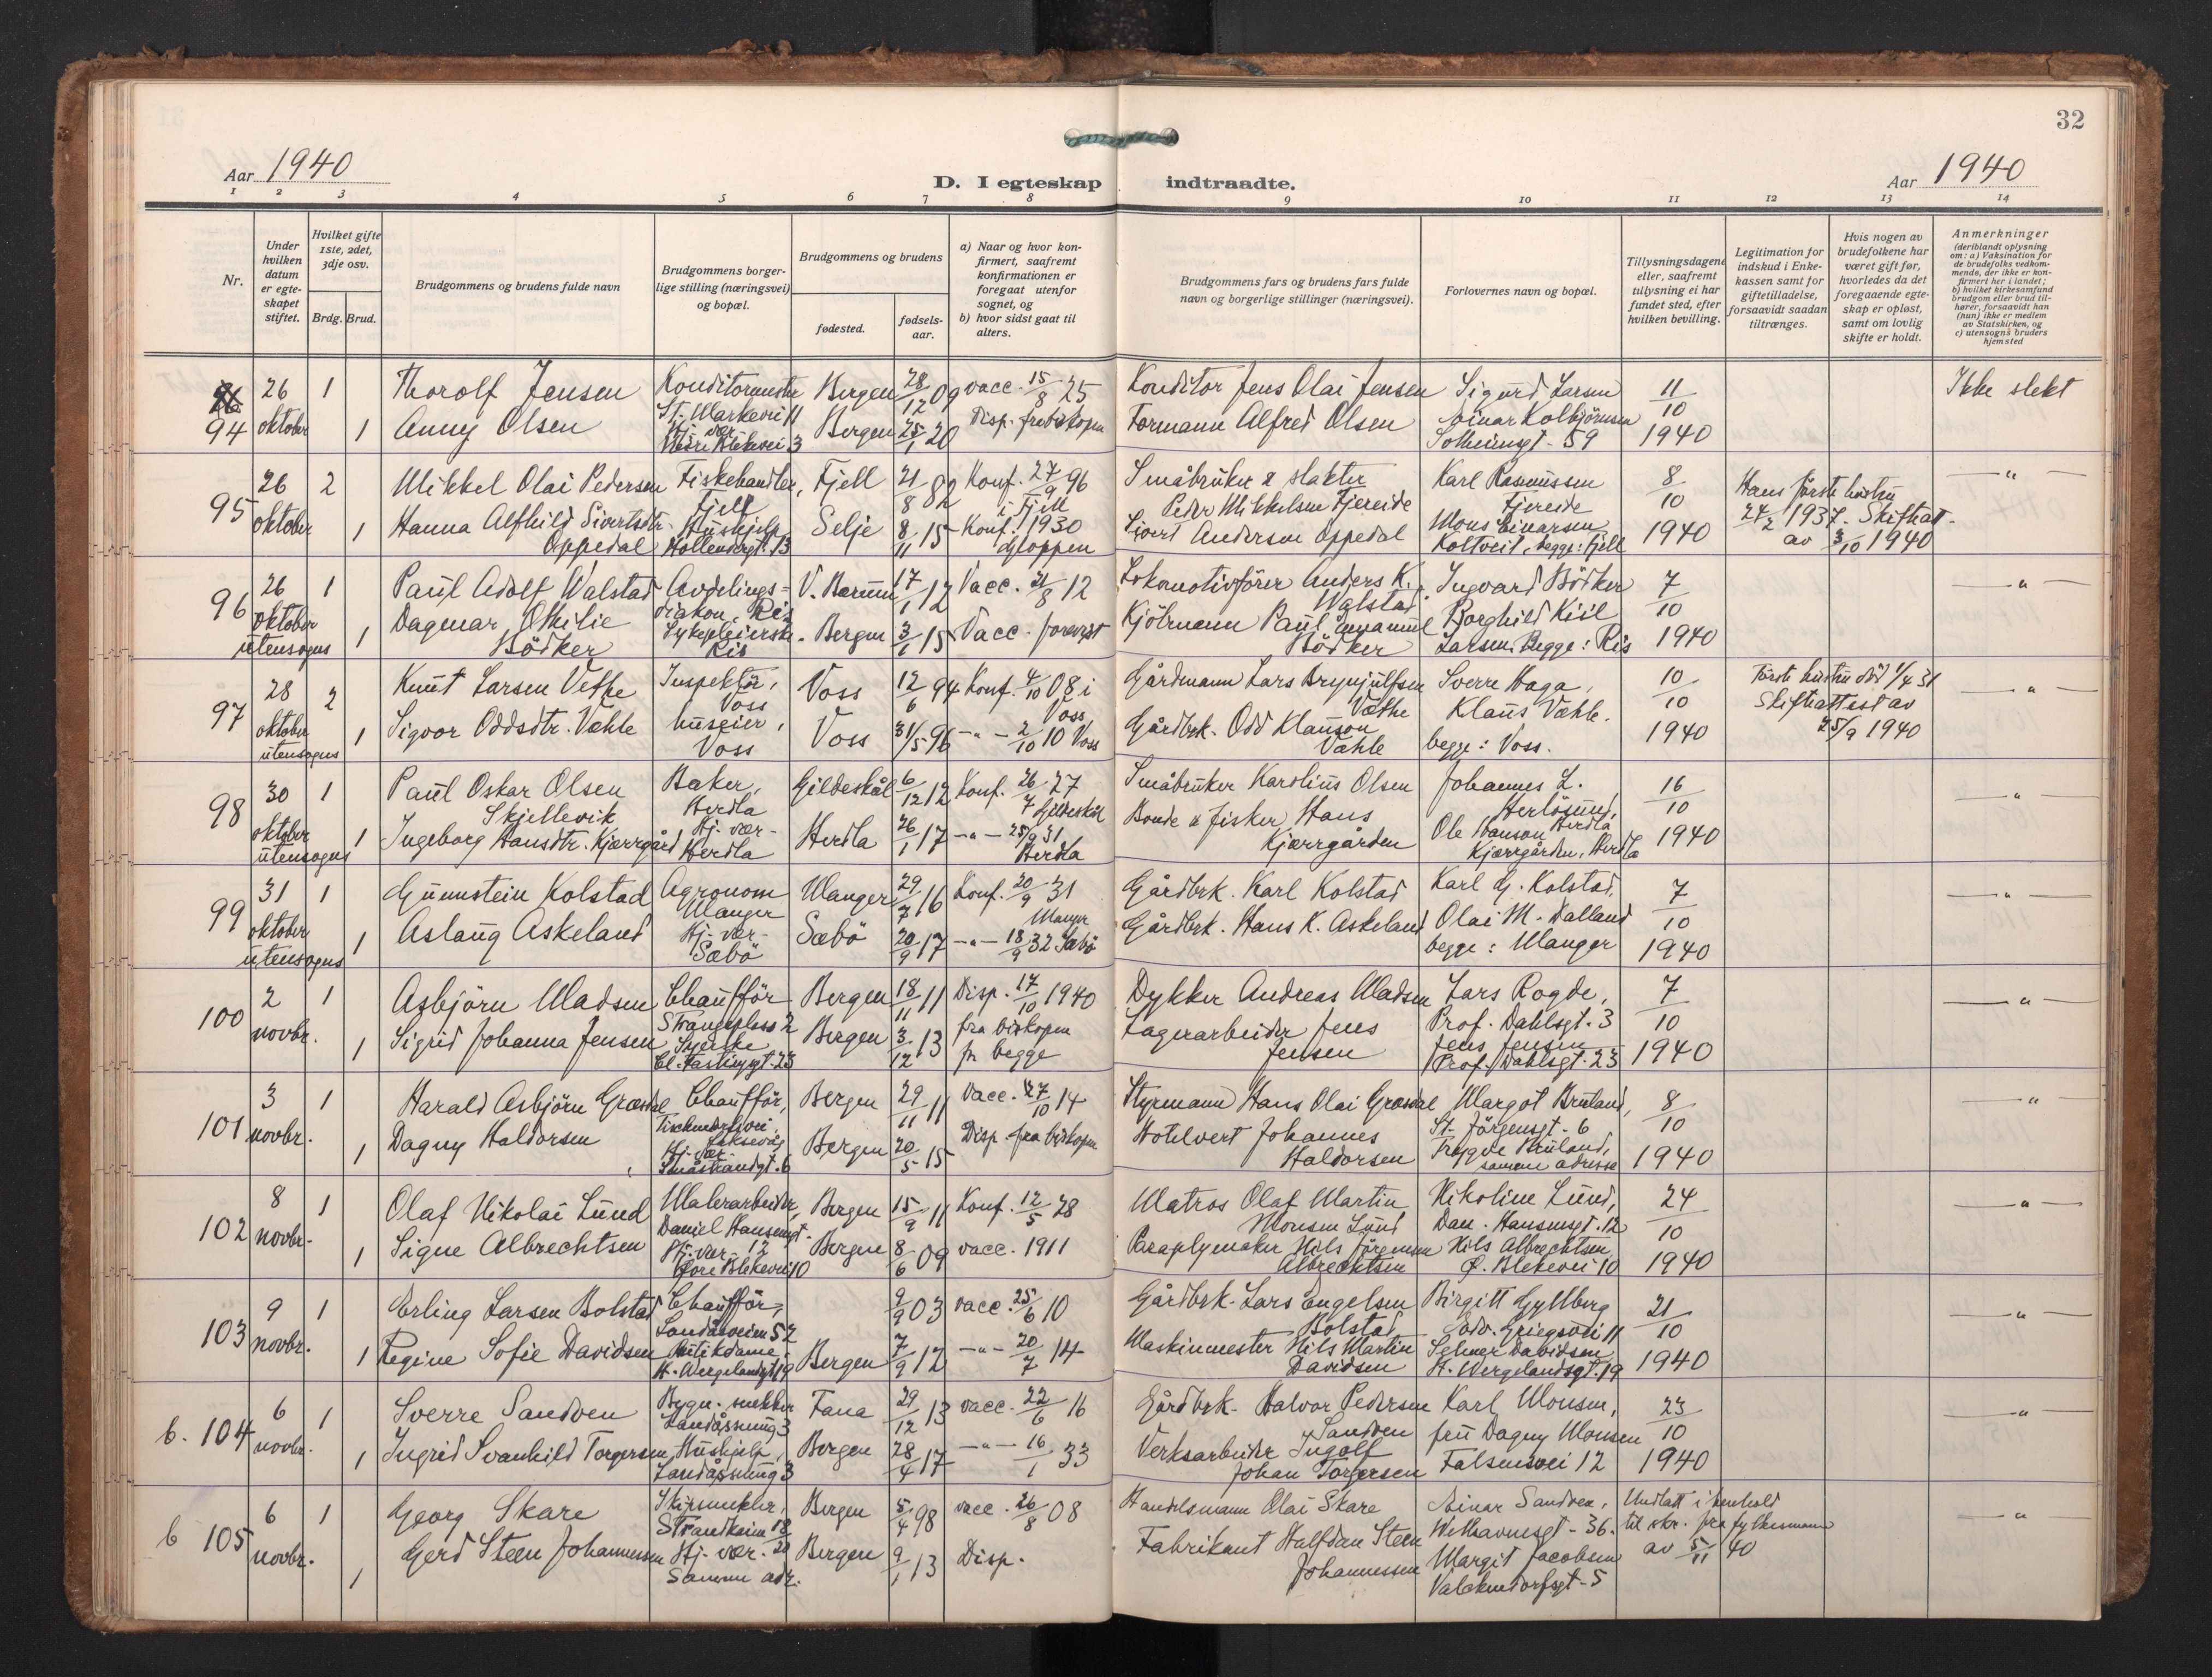 32
Aar 1940
D. I egteskap indtraadte.
Aar 1940
1 2 3 4 5 6 7 8 9 10 11 12 13 14
Nr.
Under hvilken datum er egteskapet stiftet.
Hvilket gifte 1ste, 2det, 3dje osv.
Brdg. Brud.
Brudgommens og brudens fulde navn
Brudgommens borgerlige stilling (næringsvei) og bopæl.
Brudgommens og brudens
fødested.
fødselsaar.
a) Naar og hvor konfirmert, saafremt konfirmationen er foregaat utenfor sognet, og
b) hvor sidst gaat til alters.
Brudgommens fars og brudens fars fulde navn og borgerlige stillinger (næringsvei).
Forlovernes navn og bopæl.
Tillysningsdagene eller, saafremt tillysning ei har fundet sted, efter hvilken bevilling.
Legitimation for indskud i Enkekassen samt for giftetilladelse, forsaavidt saadan tiltrænges.
Hvis nogen av brudefolkene har været gift før, hvorledes da det foregaaende egteskap er opløst, samt om lovlig skifte er holdt.
Anmerkninger
(deriblandt oplysning om: a) Vaksination for de brudefolks vedkommende, der ikke er konfirmert her i landet; b) hvilket kirkesamfund brudgom eller brud tilhører, forsaavidt han (hun) ikke er medlem av Statskirken, og c) utensogns bruders hjemsted
94 26 oktober 1 Thorolf Jensen Konditormester St. Markevei 11 Bergen 28/12 09 vacc. 15/8 25 Konditor Jens Olai Jensen Sigurd Larsen 11/10 1940 Ikke slekt
1 Anny Olsen Hj. vær. Bergen 25/1 20 Disp. fra biskopen Formann Alfred Olsen Einar Kolbjörnsen Solheimsgt. 59
95 26 oktober 2 Mikkel Olai Pedersen Fiskehandler, Fjell Fjell 21/8 82 Konf. 27/9 96 i Fjell Småbruker & slakter Peder Mikkelsen Fjereide Karl Rasmussen Fjereide 8/10 1940 Hans første hustru 24/2 1937. Skifteatt. av 3/10 1940 — " —
1 Hanna Alfhild Sivertsdtr. Oppedal Hushjelp Hollendergt. 13 Selje 8/11 15 Konf. 1930 Gloppen Sivert Andersen Oppedal Mons Einarsen Koltveit, begge: Fjell
96 26 oktober utensogns 1 Paul Adolf Walstad Avdelingsdiakon, Ris V. Bærum 17/1 12 Vacc. 21/8 12 Lokomotivfører Anders K. Walstad Ingvard Bödker 7/10 1940 — " —
1 Dagmar Othilie Bödker Sykepleierske Ris Bergen 3/1 15 Vacc. forevist Kjölmann Paul Bödker Borghild Larsen. Begge: Ris
97 28 oktober utensogns 2 Knut Larsen Vethe Inspektör, Voss Voss 12/6 94 Konf. 4/10 08 i Voss Gårdmann Lars Brynjulfsen Væthe Sverre Haga, 10/10 1940 Förste hustru död 1/4 31 Skifteattest av 25/9 1940 — " —
1 Sigvor Oddsdtr. Væhle huseier, Voss Voss 31/5 96 — " — 2/10 10 Voss Gårdbrk. Odd Klauson Væhle Klaus Væhle. begge: Voss.
98 30 oktober utensogns 1 Paul Oskar Olsen Skjellevik Baker, Herdla Gildeskål 6/12 12 Konf. 26/7 27 Gildeskål Småbruker Karolius Olsen Johannes L. Herlösund, Herdla 16/10 1940 — " —
1 Ingeborg Hansdtr. Kjærrgård Hj. vær. Herdla Herdla 26/1 17 — " — 25/9 31 Herdla Bonde & fisker Hans Kjærrgården Ole Hanson Kjærrgården, Herdla
99 31 oktober utensogns 1 Gunnstein Kolstad Agronom Manger Manger 29/7 16 Konf. 20/9 31 Manger Gårdbrk. Karl Kolstad Karl G. Kolstad, 7/10 1940 — " —
1 Aslaug Askeland Hj. vær. Sæbö Sæbö 20/9 17 — " — 18/9 32 Sæbö Gårdbrk. Hans K. Askeland Olai M. Dalland begge: Manger
100 2 novbr. 1 Asbjörn Madsen Chaufför Strangeplass 2 Bergen 18/11 11 Disp. 17/10 1940 fra biskopen fr begge Dykker Andreas Madsen Lars Rogde, Prof. Dahlsgt. 3 7/10 1940 — " —
1 Sigrid Johanna Jensen Syerske Bergen 3/12 13 Lagerarbeider Jens Jensen Jens Jensen Prof. Dahlsgt. 23
101 3 novbr. 1 Harald Asbjörn Græsdal Chaufför, Laksevåg Bergen 29/11 11 Vacc. 27/10 14 Styrmann Hans Olai Græsdal Margot Bruland, St. Jörgensgt. 6 8/10 1940 — " —
1 Dagny Haldorsen Hj. vær. Småstrandgt. 6 Bergen 20/5 15 Disp. fra biskopen Hotelvert Johannes Haldorsen Trygve Bruland, samme adresse
102 8 novbr. 1 Olaf Nikolai Lund Malerarbeider, Daniel Hansensgt. 12 Bergen 15/9 11 Konf. 12/5 28 Matros Olaf Martin Monsen Lund Nikoline Lund, Dan. Hansensgt. 12 24/10 1940 — " —
1 Signe Albrechtsen Hj. vær. Övre Blekevei 10 Bergen 8/6 09 vacc. 1911 Paraplymaker Nils Jörgensen Albrechtsen Nils Albrechtsen, Ö. Blekevei 10
103 9 novbr. 1 Erling Larsen Bolstad Chaufför, Landåsveien 52 9/9 03 vacc. 25/6 10 Gårdbrk. Lars Engelsen Bolstad Birgitt Gyllberg Edv. Griegsvei 11 21/10 1940 — " —
1 Regine Sofie Davidsen Butikdame, H. Wergelandsgt. 19 Bergen 7/9 12 — " — 20/7 14 Maskinmester Nils Martin Davidsen Selmer Davidsen H. Wergelandsgt. 19
b. 104 6 novbr. 1 Sverre Sandven Bygn. snekker Landåssving 3 Fana 29/12 13 vacc. 22/6 16 Gårdbrk. Halvor Pedersen Sandven Karl Monsen, 23/10 1940 — " —
1 Ingrid Svanhild Torgersen Hushjelp, Landåssving 3 Bergen 28/4 17 — " — 16/1 33 Verksarbeider Ingolf Johan Torgersen fru Dagny Monsen Falsensvei 12
b 105 6 novbr. 1 Georg Skare Skipsmekler, Strandkaien 18 Bergen 5/4 98 vacc. 26/8 08 Handelsmann Olai Skare Einar Sandven, Welhavensgt. 36. Undlatt i henhold til skr. fra fylkesmann av 5/11 40 — " —
1 Gerd Steen Johannessen Hj. vær. Samme adr. Bergen 9/1 13 Disp. Fabrikant Halfdan Steen Johannessen Margit Jacobsen Valckendorfsgt. 5